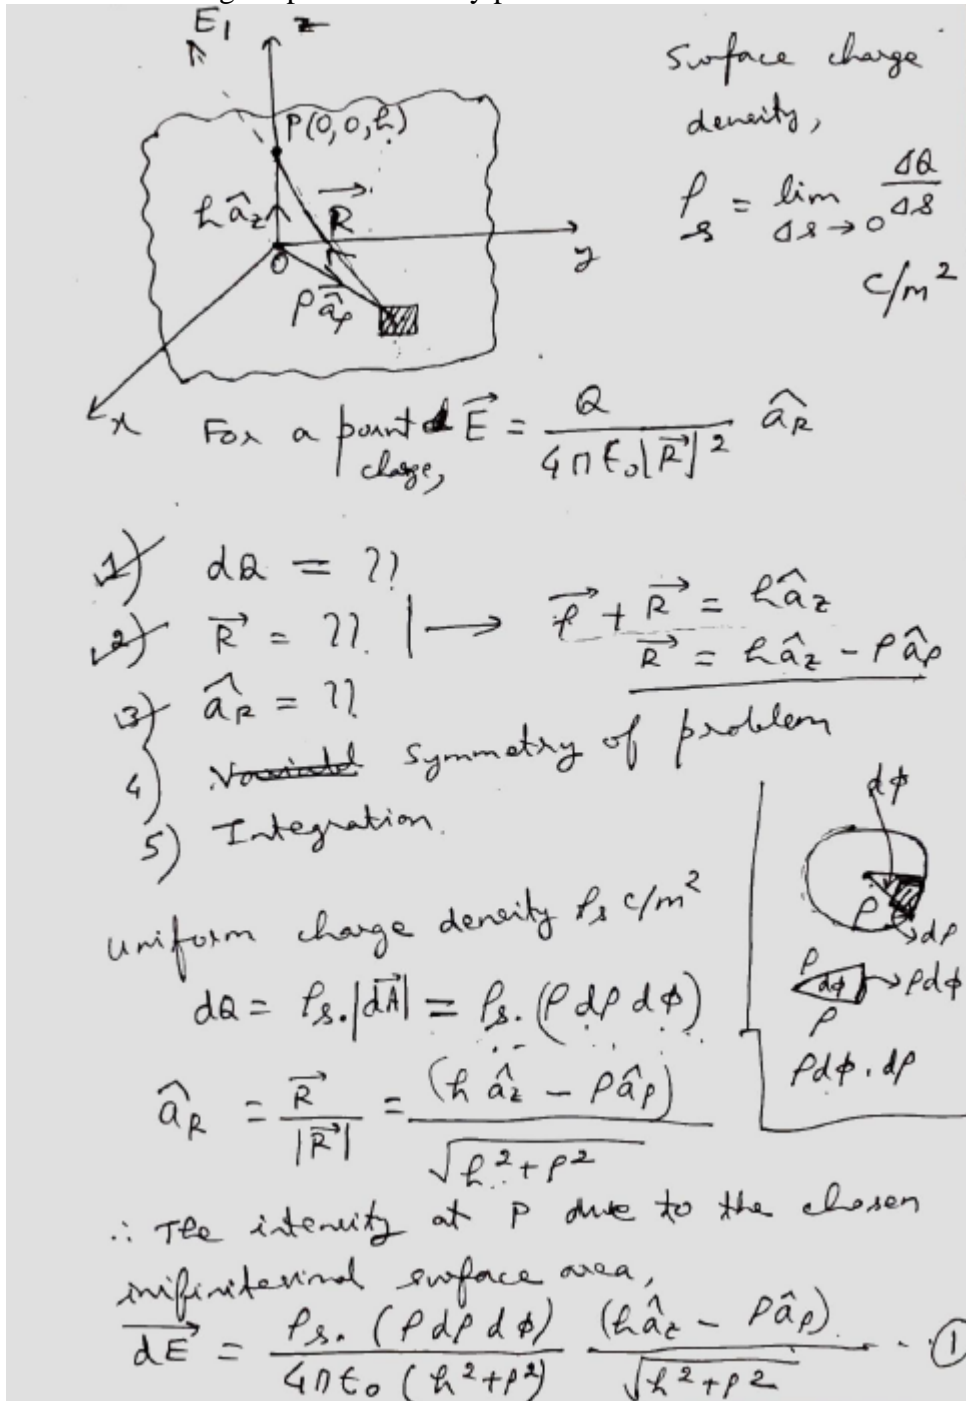 E1 z
P(0,0,h)
h âz R⃗
O y
ρâρ
x
Surface charge
density,
ρs = lim Δs→0 ΔQ/Δs
C/m²
For a point charge, E⃗ = Q / 4πε₀|R⃗|² âR
1) dQ = ??
2) R⃗ = ??. | → ρ⃗ + R⃗ = hâz
R⃗ = hâz - ρâρ
3) âR = ??
4) Symmetry of problem
5) Integration.
dφ
ρ
dρ
ρ dφ → ρdφ
ρ
ρdφ.dρ
uniform charge density ρs C/m²
dQ = ρs.|dA⃗| = ρs.(ρ dρ dφ)
âR = R⃗/|R⃗| = (h âz - ρâρ) / √h²+ρ²
∴ The intensity at P due to the chosen
inifinitesimal surface area,
dE⃗ = ρs.(ρ dρ dφ) / 4πε₀ (h²+ρ²) (hâz - ρâρ) / √h²+ρ² -- ①